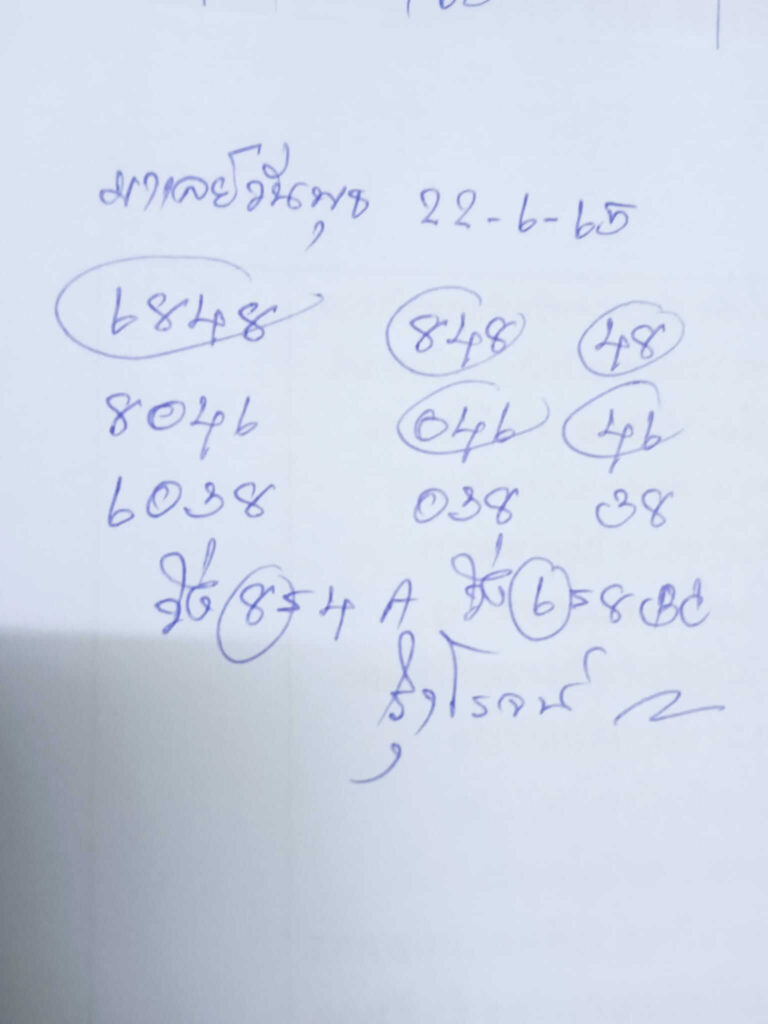 มาเลย์วันพุธ 22-6-65
6848 848 48
8046 046 46
6038 038 38
วิ่ง 8=4 A วิ่ง 6=8 BC
รุ่งโรจน์